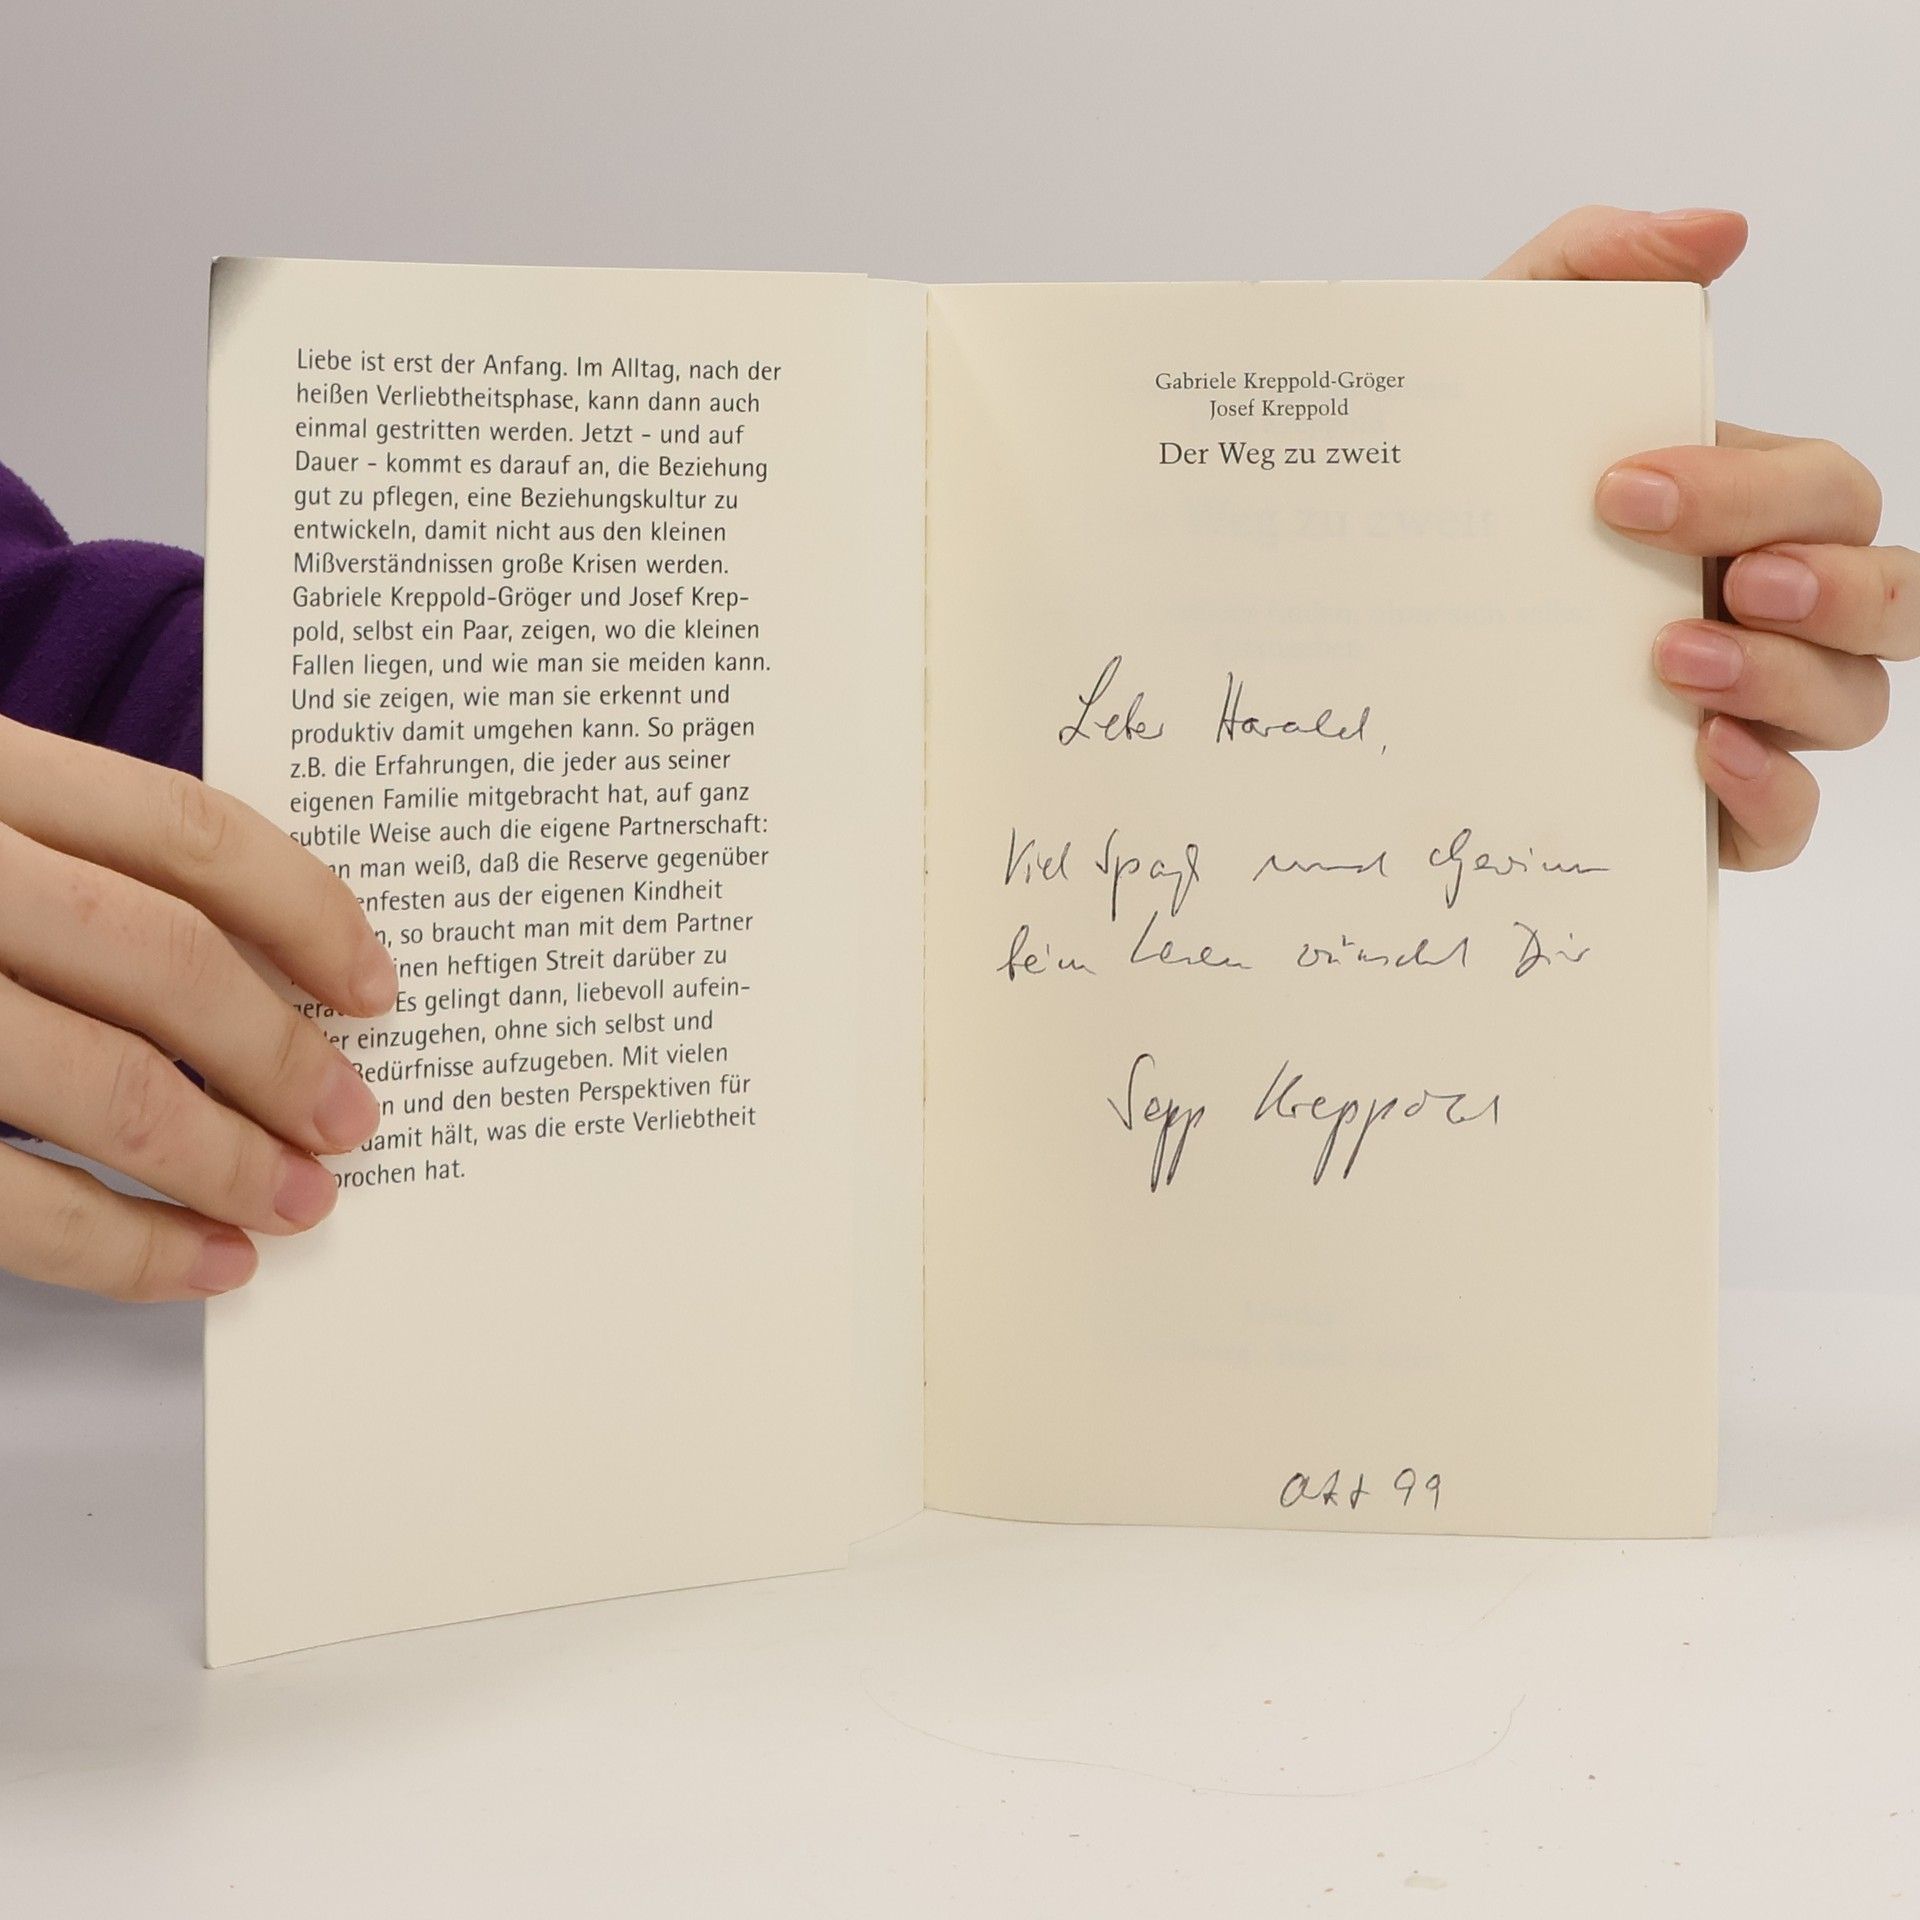 Liebe ist erst der Anfang. Im Alltag, nach der
heißen Verliebtheitsphase, kann dann auch
einmal gestritten werden. Jetzt - und auf
Dauer - kommt es darauf an, die Beziehung
gut zu pflegen, eine Beziehungskultur zu
entwickeln, damit nicht aus den kleinen
Mißverständnissen große Krisen werden.
Gabriele Kreppold-Gröger und Josef Krep-
pold, selbst ein Paar, zeigen, wo die kleinen
Fallen liegen, und wie man sie meiden kann.
Und sie zeigen, wie man sie erkennt und
produktiv damit umgehen kann. So prägen
z.B. die Erfahrungen, die jeder aus seiner
eigenen Familie mitgebracht hat, auf ganz
subtile Weise auch die eigene Partnerschaft:
man weiß, daß die Reserve gegenüber
aus der eigenen Kindheit
so braucht man mit dem Partner
heftigen Streit darüber zu
Es gelingt dann, liebevoll aufein-
einzugehen, ohne sich selbst und
Bedürfnisse aufzugeben. Mit vielen
und den besten Perspektiven für
damit hält, was die erste Verliebtheit
hat.
Gabriele Kreppold-Gröger
Josef Kreppold
Der Weg zu zweit
Lieber Harald,
Viel Spaß und Gewinn
beim Lesen wünscht Dir
Sepp Kreppold
Okt 99